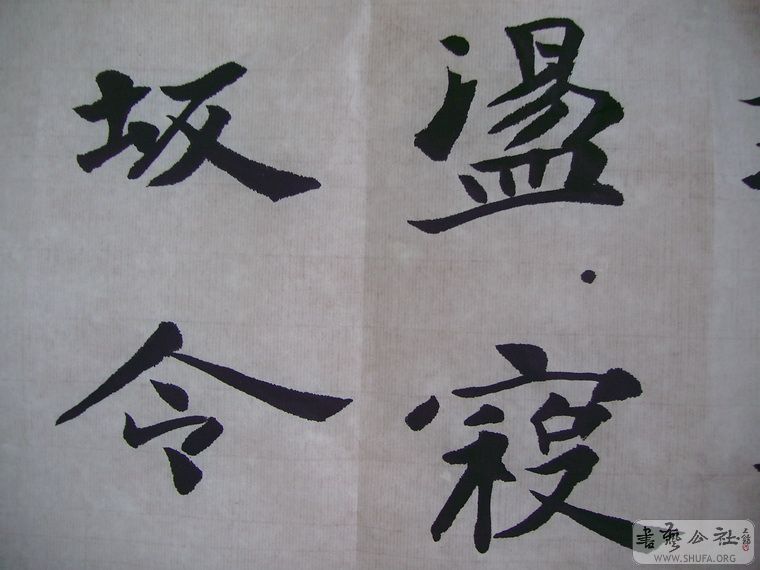 盪·寢
坂令
書藝公社
WWW.SHUFA.ORG